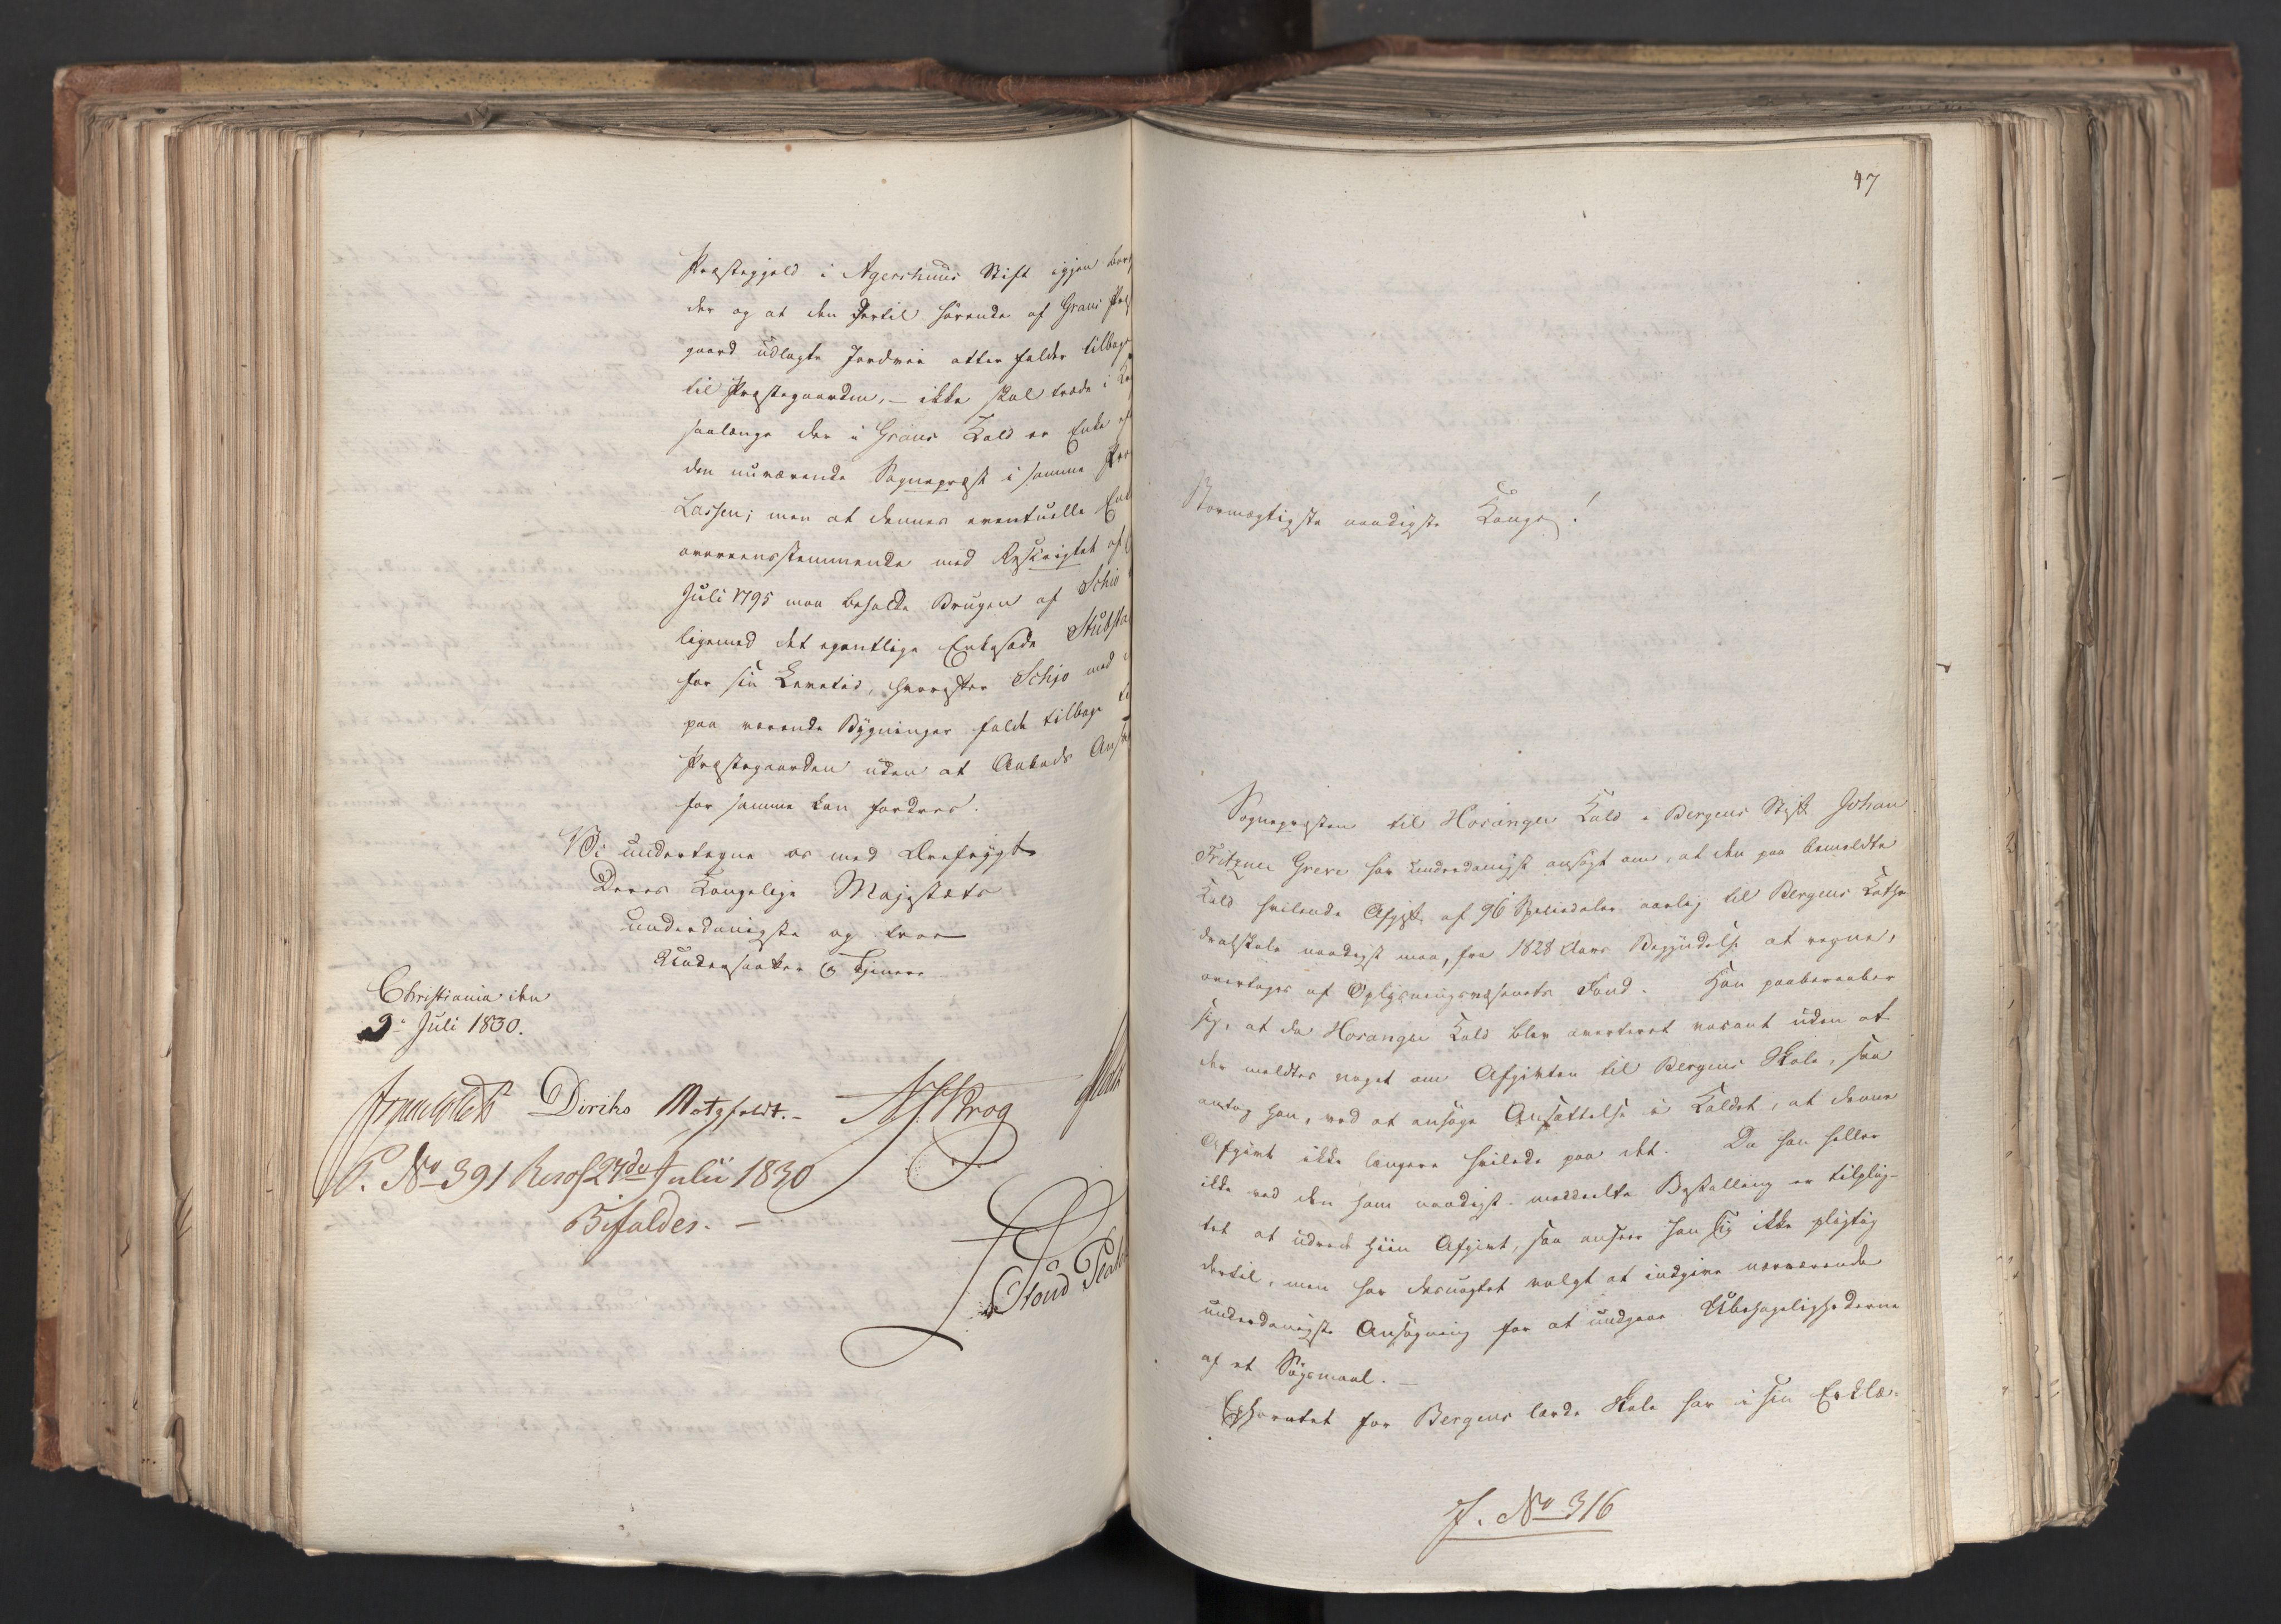 Præstegjeld i Agershuus Stift igjen
der og at den hertil hørende af Grans
gaard udlagte Jordvei atter falder tilbage
til Præstegaarden, – ikke skal træde i
saalænge der i Grans Kald er Enke
den nuværende Sogneprest i samme
Lassen; men at dennes eventuelle
overeensstemmende med Reskriptet af
Juli 1795 maa beholde Brugen af
ligemed det egentlige Enkesæde
for sin Levetid, hvorefter Schjo med
paa værende Bygninger falde tilbage
Præstegaarden uden at Aabods
for samme kan fordres.
Vi undertegne os med Ærefrygt
Deres Kongelige Majestæts
underdanigste og troe
Undersaatter & Tjenere
Christiania den
9de Juli 1830.
Diriks Motzfeldt. – Krog
P. No 391 Resol 27de Julii 1830
Bifaldes. –
47
Stormægtigste naadigste Konge!
Sognepresten til Hosanger Kald i Bergens Stift Johan
Fritzner Greve har underdanigst ansøgt om, at den paa bemeldte
Kald hvilende Afgift af 96 Speciedaler aarlig til Bergens Kathe-
dralskole naadigst maa, fra 1828 Aars Begyndelse at regne,
overtages af Oplysningsvæsenets Fond. Han paaberaaber
sig, at da Hosanger Kald blev averteret vacant uden at
der meldtes noget om Afgivten til Bergens Skole, saa
antog han, ved at ansøge Ansættelse i Kaldet, at denne
Afgivt ikke længere hvilede paa det. Da han heller
ikke ved den ham naadigst meddeelte Bestalling er tilplig-
tet at udrede hiin Afgivt, saa anseer han sig ikke pligtig
dertil, men har desuagtet valgt at indgive nærværende
underdanigste Ansøgning for at undgaae Ubehagelighederne
af et Søgsmaal. –
Ephoratet for Bergens lærde Skole har i sin Erklæ-
J. No 316